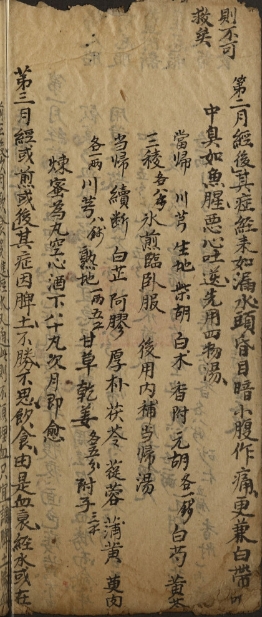 則不可
救矣
第二月經後其症經來如漏水頭昏目暗小腹作痛更兼白帶
中臭如魚腥惡心吐逆先用四物湯
當歸 川芎 生地 柴胡 白术 香附 元胡各一錢 白芍 黃芩
三稜各 水煎臨卧服 後用内補当帰湯
当帰 續断 白芷 阿膠 厚朴 茯苓 蓯蓉 蒲黄 萸肉
各一兩 川芎八錢 熟地一兩五 甘草 乾姜各五分 附子三
煉蜜為丸空心酒下八十九次月即愈
第三月經或前或後其症因脾土不勝不思飲食由是血衰經水或在